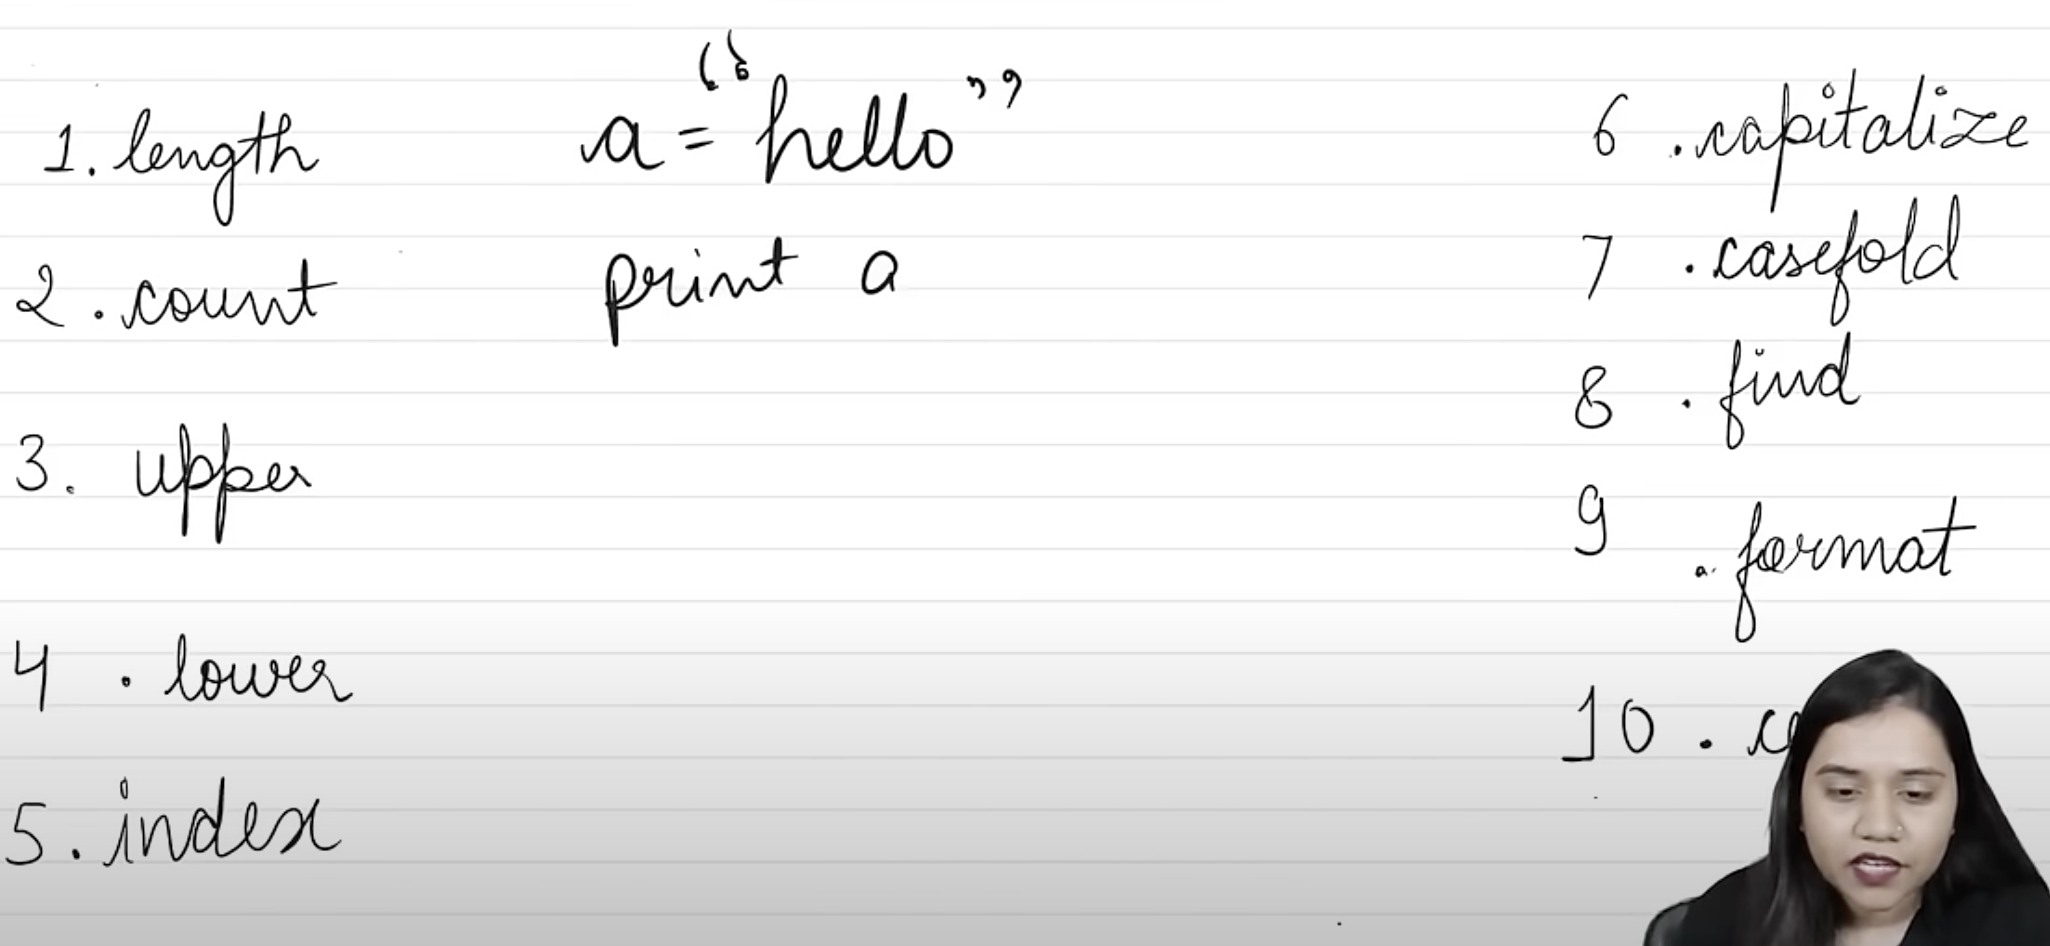 1. length
2. count
3. upper
4. lower
5. index
a = "hello"
print a
6. capitalize
7. casefold
8. find
9. format
10.